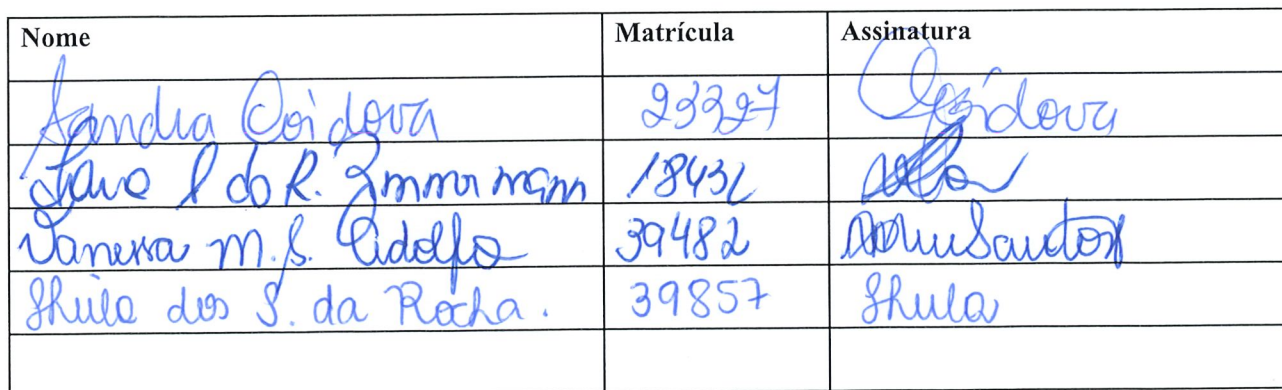 Nome Matrícula Assinatura
Sandra Córdova 23327 Córdova
do R. Zimmermann
Vanessa M. S. Adolfo 39482 Santos
Sheila dos S. da Rocha. 39857 Sheila